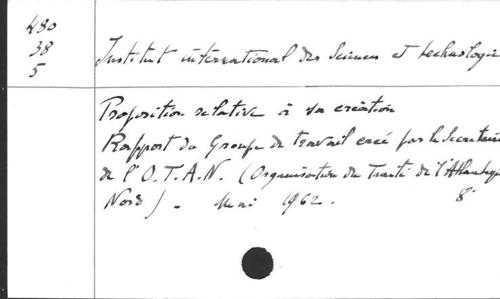 480
38
5
Institut international des Sciences et technologie
Proposition relative à sa création
Rapport du Groupe de travail créé par le Secrétaire
de l'O.T.A.N. (Organisation du Traité de l'Atlantique
Nord). Mai 1962. 8°